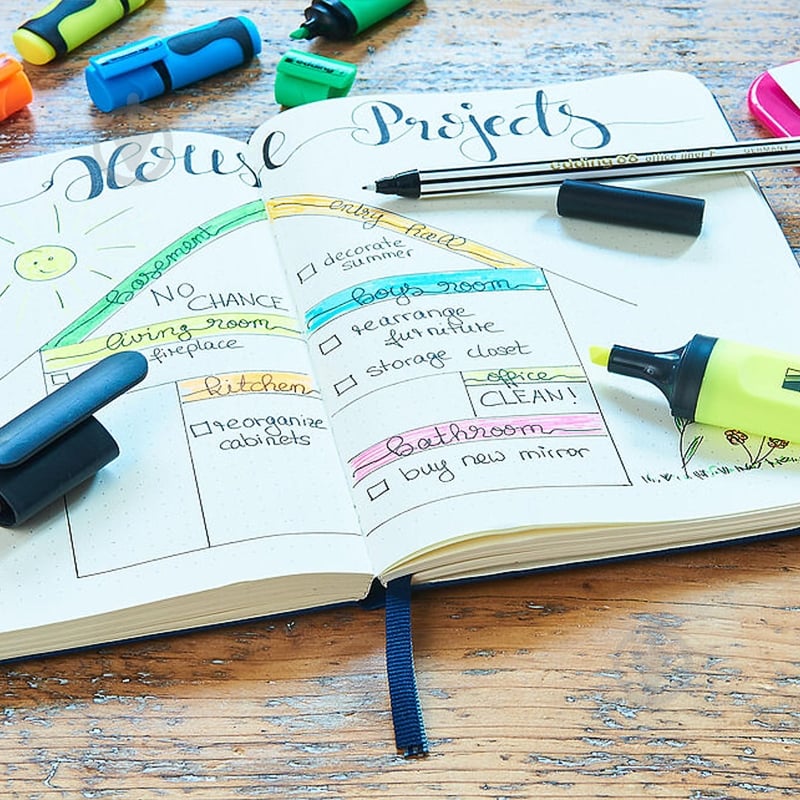 House Projects
basement
NO
CHANCE
living room
fireplace
kitchen
reorganize
cabinets
entry hall
decorate
summer
boys room
rearrange
furniture
storage closet
office
CLEAN!
bathroom
buy new mirror
edding 88 office liner F GERMANY